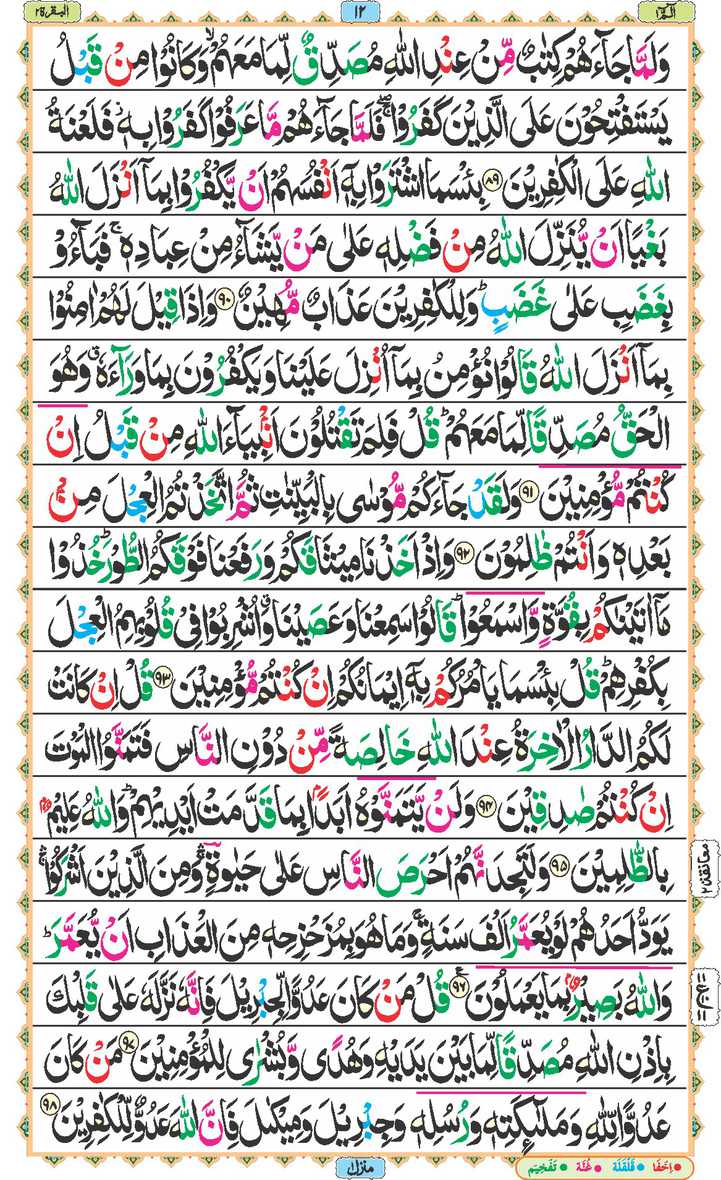 الٓمّٓ ١
١٢
البقرة ٢
وَلَمَّا جَآءَهُمْ كِتٰبٌ مِّنْ عِنْدِ اللّٰهِ مُصَدِّقٌ لِّمَا مَعَهُمْ ۙ وَكَانُوْا مِنْ قَبْلُ
يَسْتَفْتِحُوْنَ عَلَى الَّذِيْنَ كَفَرُوْا ۖۚ فَلَمَّا جَآءَهُمْ مَّا عَرَفُوْا كَفَرُوْا بِهٖ ؗ فَلَعْنَةُ
اللّٰهِ عَلَى الْكٰفِرِيْنَ ۝۸۹ بِئْسَمَا اشْتَرَوْا بِهٖٓ اَنْفُسَهُمْ اَنْ يَّكْفُرُوْا بِمَآ اَنْزَلَ اللّٰهُ
بَغْيًا اَنْ يُّنَزِّلَ اللّٰهُ مِنْ فَضْلِهٖ عَلٰى مَنْ يَّشَآءُ مِنْ عِبَادِهٖ ۚ فَبَآءُوْ
بِغَضَبٍ عَلٰى غَضَبٍ ؕ وَلِلْكٰفِرِيْنَ عَذَابٌ مُّهِيْنٌ ۝۹۰ وَاِذَا قِيْلَ لَهُمْ اٰمِنُوْا
بِمَآ اَنْزَلَ اللّٰهُ قَالُوْا نُؤْمِنُ بِمَآ اُنْزِلَ عَلَيْنَا وَيَكْفُرُوْنَ بِمَا وَرَآءَهٗ ۗ وَهُوَ
الْحَقُّ مُصَدِّقًا لِّمَا مَعَهُمْ ؕ قُلْ فَلِمَ تَقْتُلُوْنَ اَنْۢبِيَآءَ اللّٰهِ مِنْ قَبْلُ اِنْ
كُنْتُمْ مُّؤْمِنِيْنَ ۝۹۱ وَلَقَدْ جَآءَكُمْ مُّوْسٰى بِالْبَيِّنٰتِ ثُمَّ اتَّخَذْتُمُ الْعِجْلَ مِنْۢ
بَعْدِهٖ وَاَنْتُمْ ظٰلِمُوْنَ ۝۹۲ وَاِذْ اَخَذْنَا مِيْثَاقَكُمْ وَرَفَعْنَا فَوْقَكُمُ الطُّوْرَ ؕ خُذُوْا
مَآ اٰتَيْنٰكُمْ بِقُوَّةٍ وَّاسْمَعُوْا ؕ قَالُوْا سَمِعْنَا وَعَصَيْنَا ۗ وَاُشْرِبُوْا فِيْ قُلُوْبِهِمُ الْعِجْلَ
بِكُفْرِهِمْ ؕ قُلْ بِئْسَمَا يَاْمُرُكُمْ بِهٖٓ اِيْمَانُكُمْ اِنْ كُنْتُمْ مُّؤْمِنِيْنَ ۝۹۳ قُلْ اِنْ كَانَتْ
لَكُمُ الدَّارُ الْاٰخِرَةُ عِنْدَ اللّٰهِ خَالِصَةً مِّنْ دُوْنِ النَّاسِ فَتَمَنَّوُا الْمَوْتَ
اِنْ كُنْتُمْ صٰدِقِيْنَ ۝۹۴ وَلَنْ يَّتَمَنَّوْهُ اَبَدًۢا بِمَا قَدَّمَتْ اَيْدِيْهِمْ ؕ وَاللّٰهُ عَلِيْمٌۢ
بِالظّٰلِمِيْنَ ۝۹۵ وَلَتَجِدَنَّهُمْ اَحْرَصَ النَّاسِ عَلٰى حَيٰوةٍ ۛۚ وَمِنَ الَّذِيْنَ اَشْرَكُوْا ۛۚ
يَوَدُّ اَحَدُهُمْ لَوْ يُعَمَّرُ اَلْفَ سَنَةٍ ۚ وَمَا هُوَ بِمُزَحْزِحِهٖ مِنَ الْعَذَابِ اَنْ يُّعَمَّرَ ؕ
وَاللّٰهُ بَصِيْرٌۢ بِمَا يَعْمَلُوْنَ ۝۹۶ قُلْ مَنْ كَانَ عَدُوًّا لِّجِبْرِيْلَ فَاِنَّهٗ نَزَّلَهٗ عَلٰى قَلْبِكَ
بِاِذْنِ اللّٰهِ مُصَدِّقًا لِّمَا بَيْنَ يَدَيْهِ وَهُدًى وَّبُشْرٰى لِلْمُؤْمِنِيْنَ ۝۹۷ مَنْ كَانَ
عَدُوًّا لِّلّٰهِ وَمَلٰٓئِكَتِهٖ وَرُسُلِهٖ وَجِبْرِيْلَ وَمِيْكٰىلَ فَاِنَّ اللّٰهَ عَدُوٌّ لِّلْكٰفِرِيْنَ ۝۹۸
معانقة ٢
منزل ١
اِخْفَا • قَلْقَلَه • غُنَّه • تَفْخِيْم